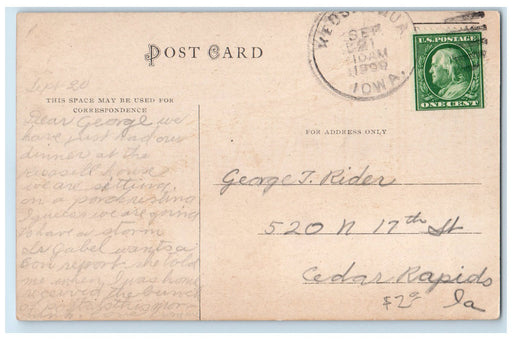 POST CARD
SEP
21
10 AM
1909
IOWA.
U.S. POSTAGE
ONE CENT
Sept 20
THIS SPACE MAY BE USED FOR
CORRESPONDENCE
FOR ADDRESS ONLY
Dear George we
have just had our
dinner at the
Russell house
we are setting
on a porch resting
I guess we are going
to have a storm
Dr Gabel wants a
report she told
me when I was home
received the bunch
of
George T. Rider
520 N 17th St
Cedar Rapids
Ia